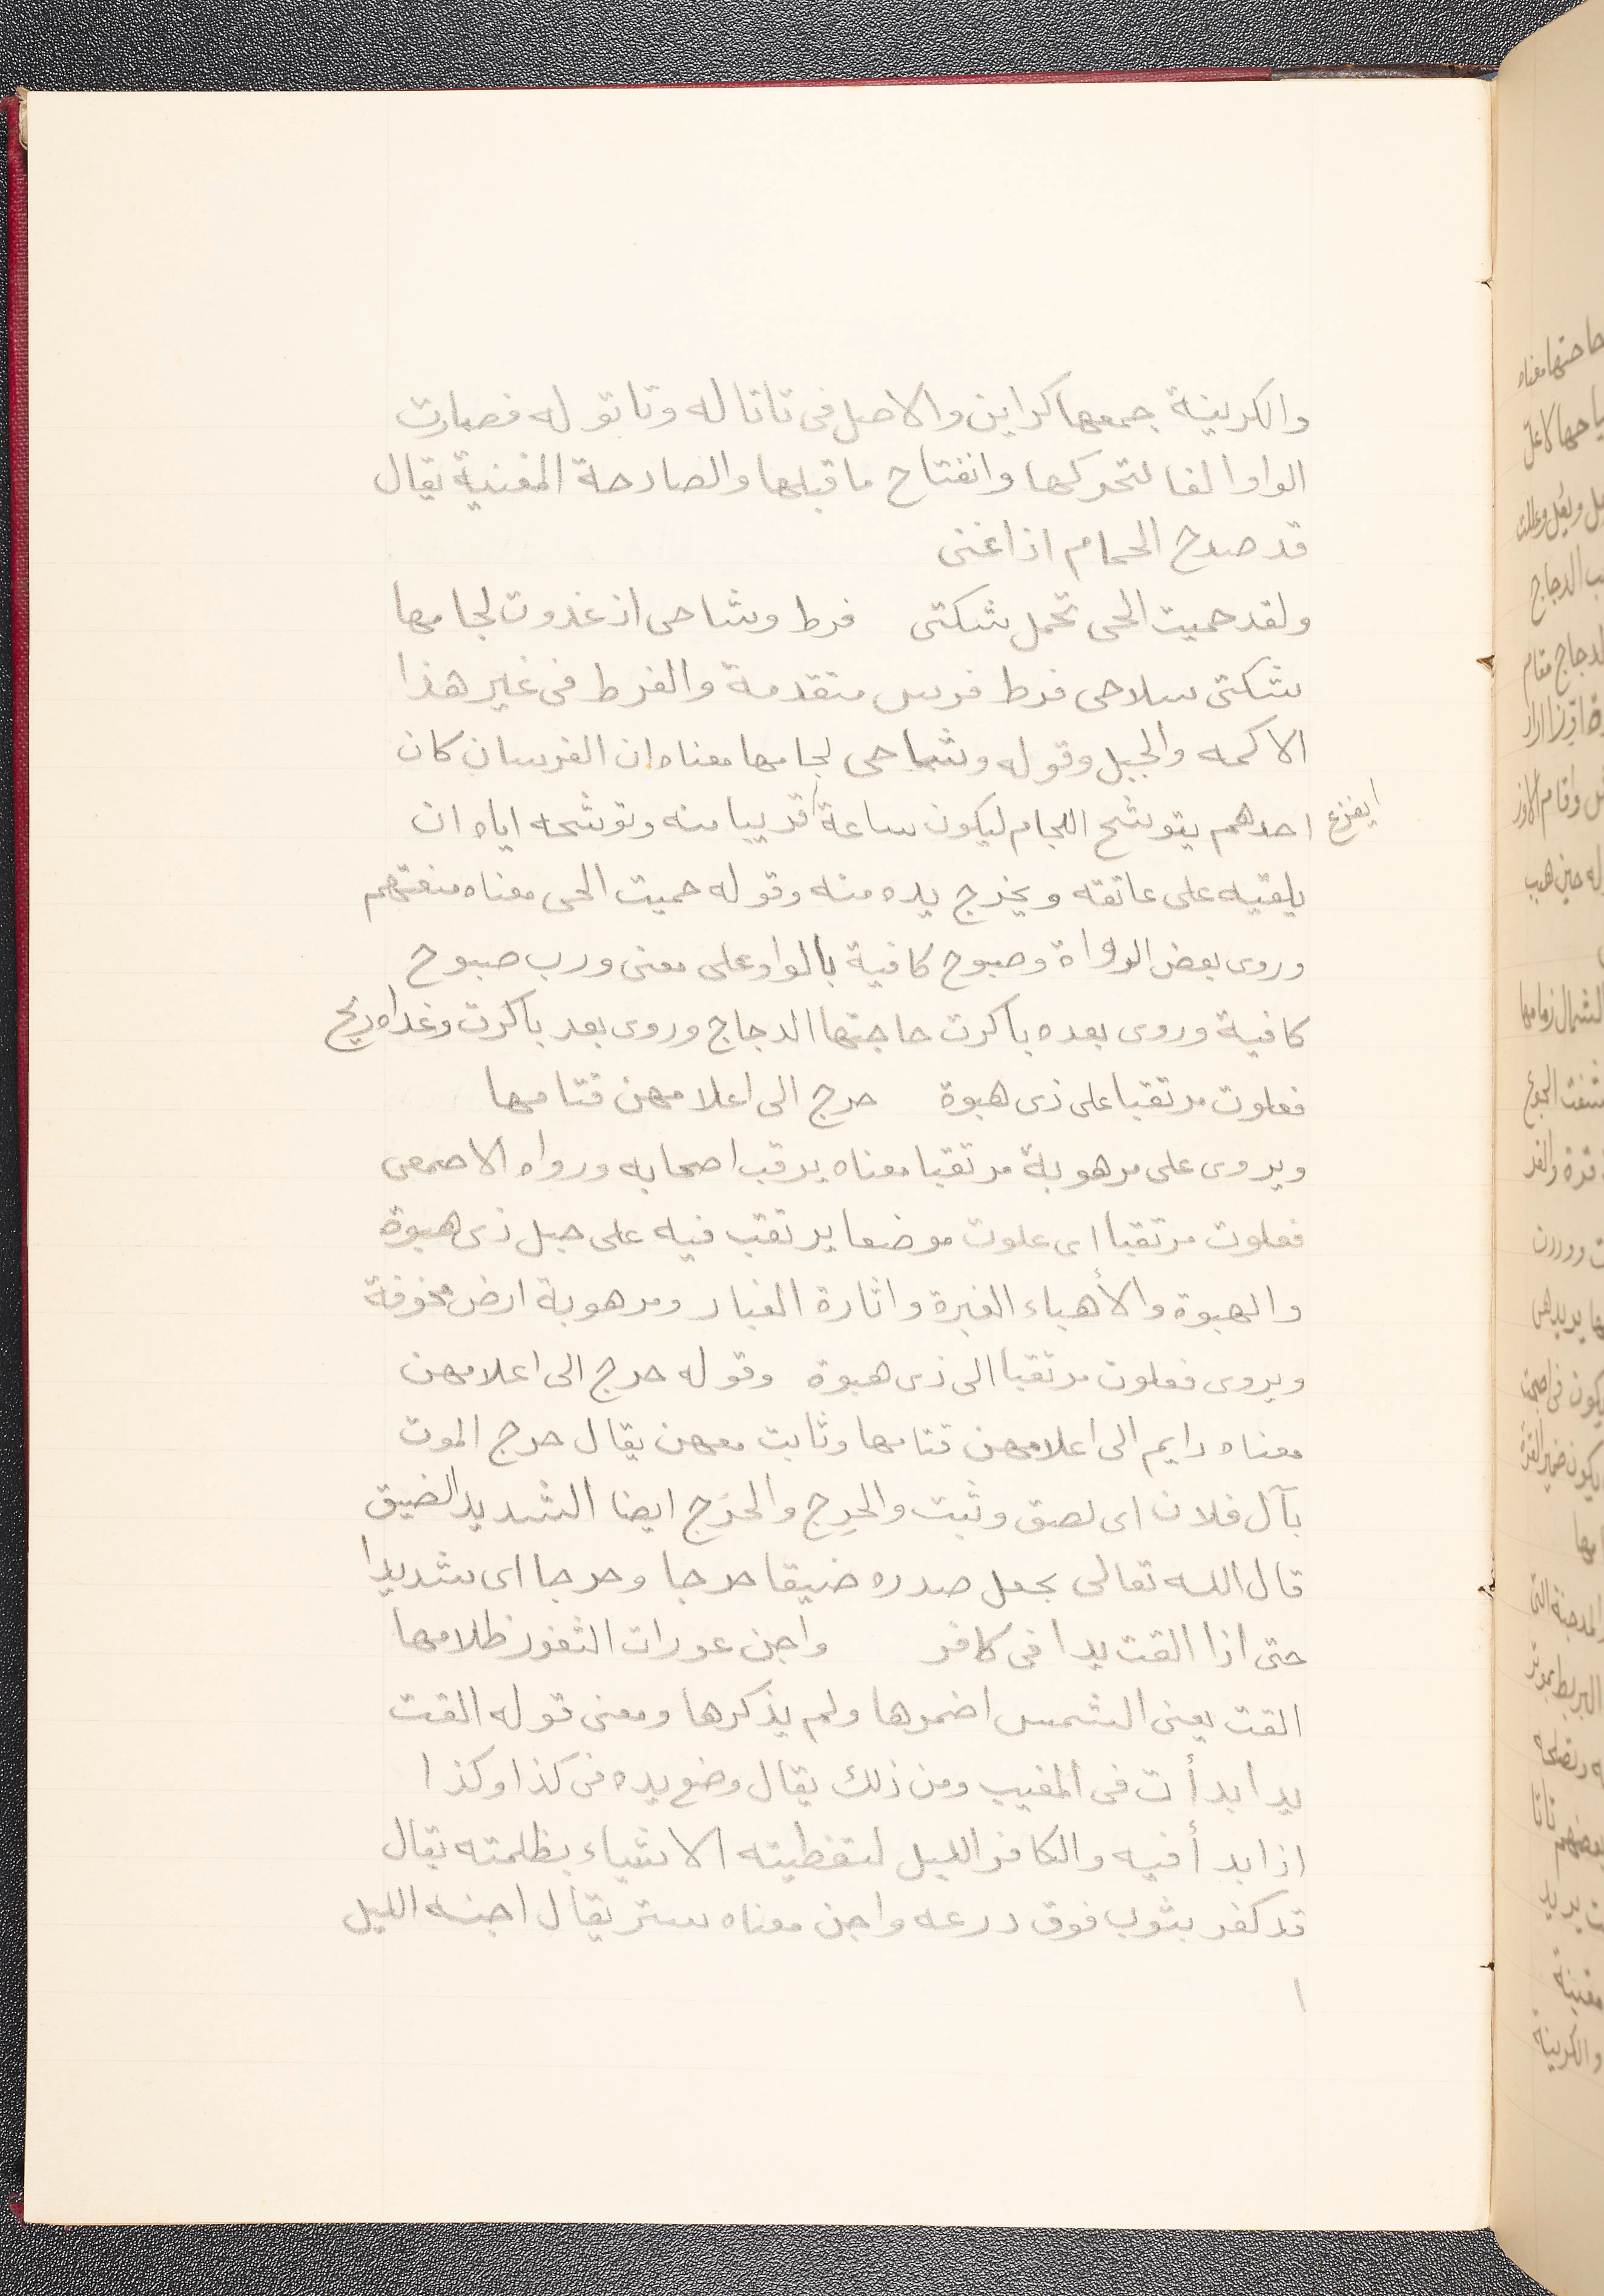 والكرينة جمعها كراين والاصل فى تاتاله وتاتوله فصارت
الواو الفا لتحركها وانفتاح ما قبلها والصادحة المغنية يقال
قد صدح الحمام اذا غنى
ولقد حميت الحى تحمل شكتى فرط وشاحى اذ غدوت لجامها
شكتى سلاحى فرط فرس متقدمة والفرط فى غير هذا
الاكمه والجبل وقوله وشاحى لجامها معناه ان الفرسان كان
احدهم يتوشح اللجام ليكون ساعة قريبا منه وتوشحه اياه ان
يفزع
يلقيه على عاتقه ويخرج يده منه وقوله حميت الحى معناه منعتهم
وروى بعض الرواة وصبوح كافية بالواو على معنى ورب صبوح
كافية وروى بعده باكرت حاجتها الدجاج وروى بعد باكرت وغداه ريح
فعلوت مرتقبا على ذى هبوة حرج الى اعلامهن قتامها
ويروى على مرهوبة مرتقبا معناه يرقب اصحابه ورواه الاصمعى
فعلوت مرتقبا اى علوت موضعا يرتقب فيه على جبل ذى هبوة
والهبوة والأهباء الغبرة واثارة الغبار ومرهوبة ارض مخوفة
ويروى فعلوت مرتقبا الى ذى هبوة وقوله حرج الى اعلامهن
معناه دايم الى اعلامهن قتامها وثابت معهن يقال حرج الموت
بآل فلان اى لصق وثبت والحرج والحرج ايضا الشديد الضيق
قال الله تعالى يجعل صدره ضيقا حرجا وحرجا اى شديدا
حتى اذا القت يدا فى كافر واجن عورات الثغور ظلامها
القت يعنى الشمس اضمرها ولم يذكرها ومعنى قوله القت
يدا بدأت فى المغيب ومن ذلك يقال وضع يده فى كذا وكذا
اذا بدأ فيه والكافر الليل لتغطيته الاشياء بظلمته يقال
قد كفر بثوب فوق درعه واجن معناه ستر يقال اجنه الليل
ا